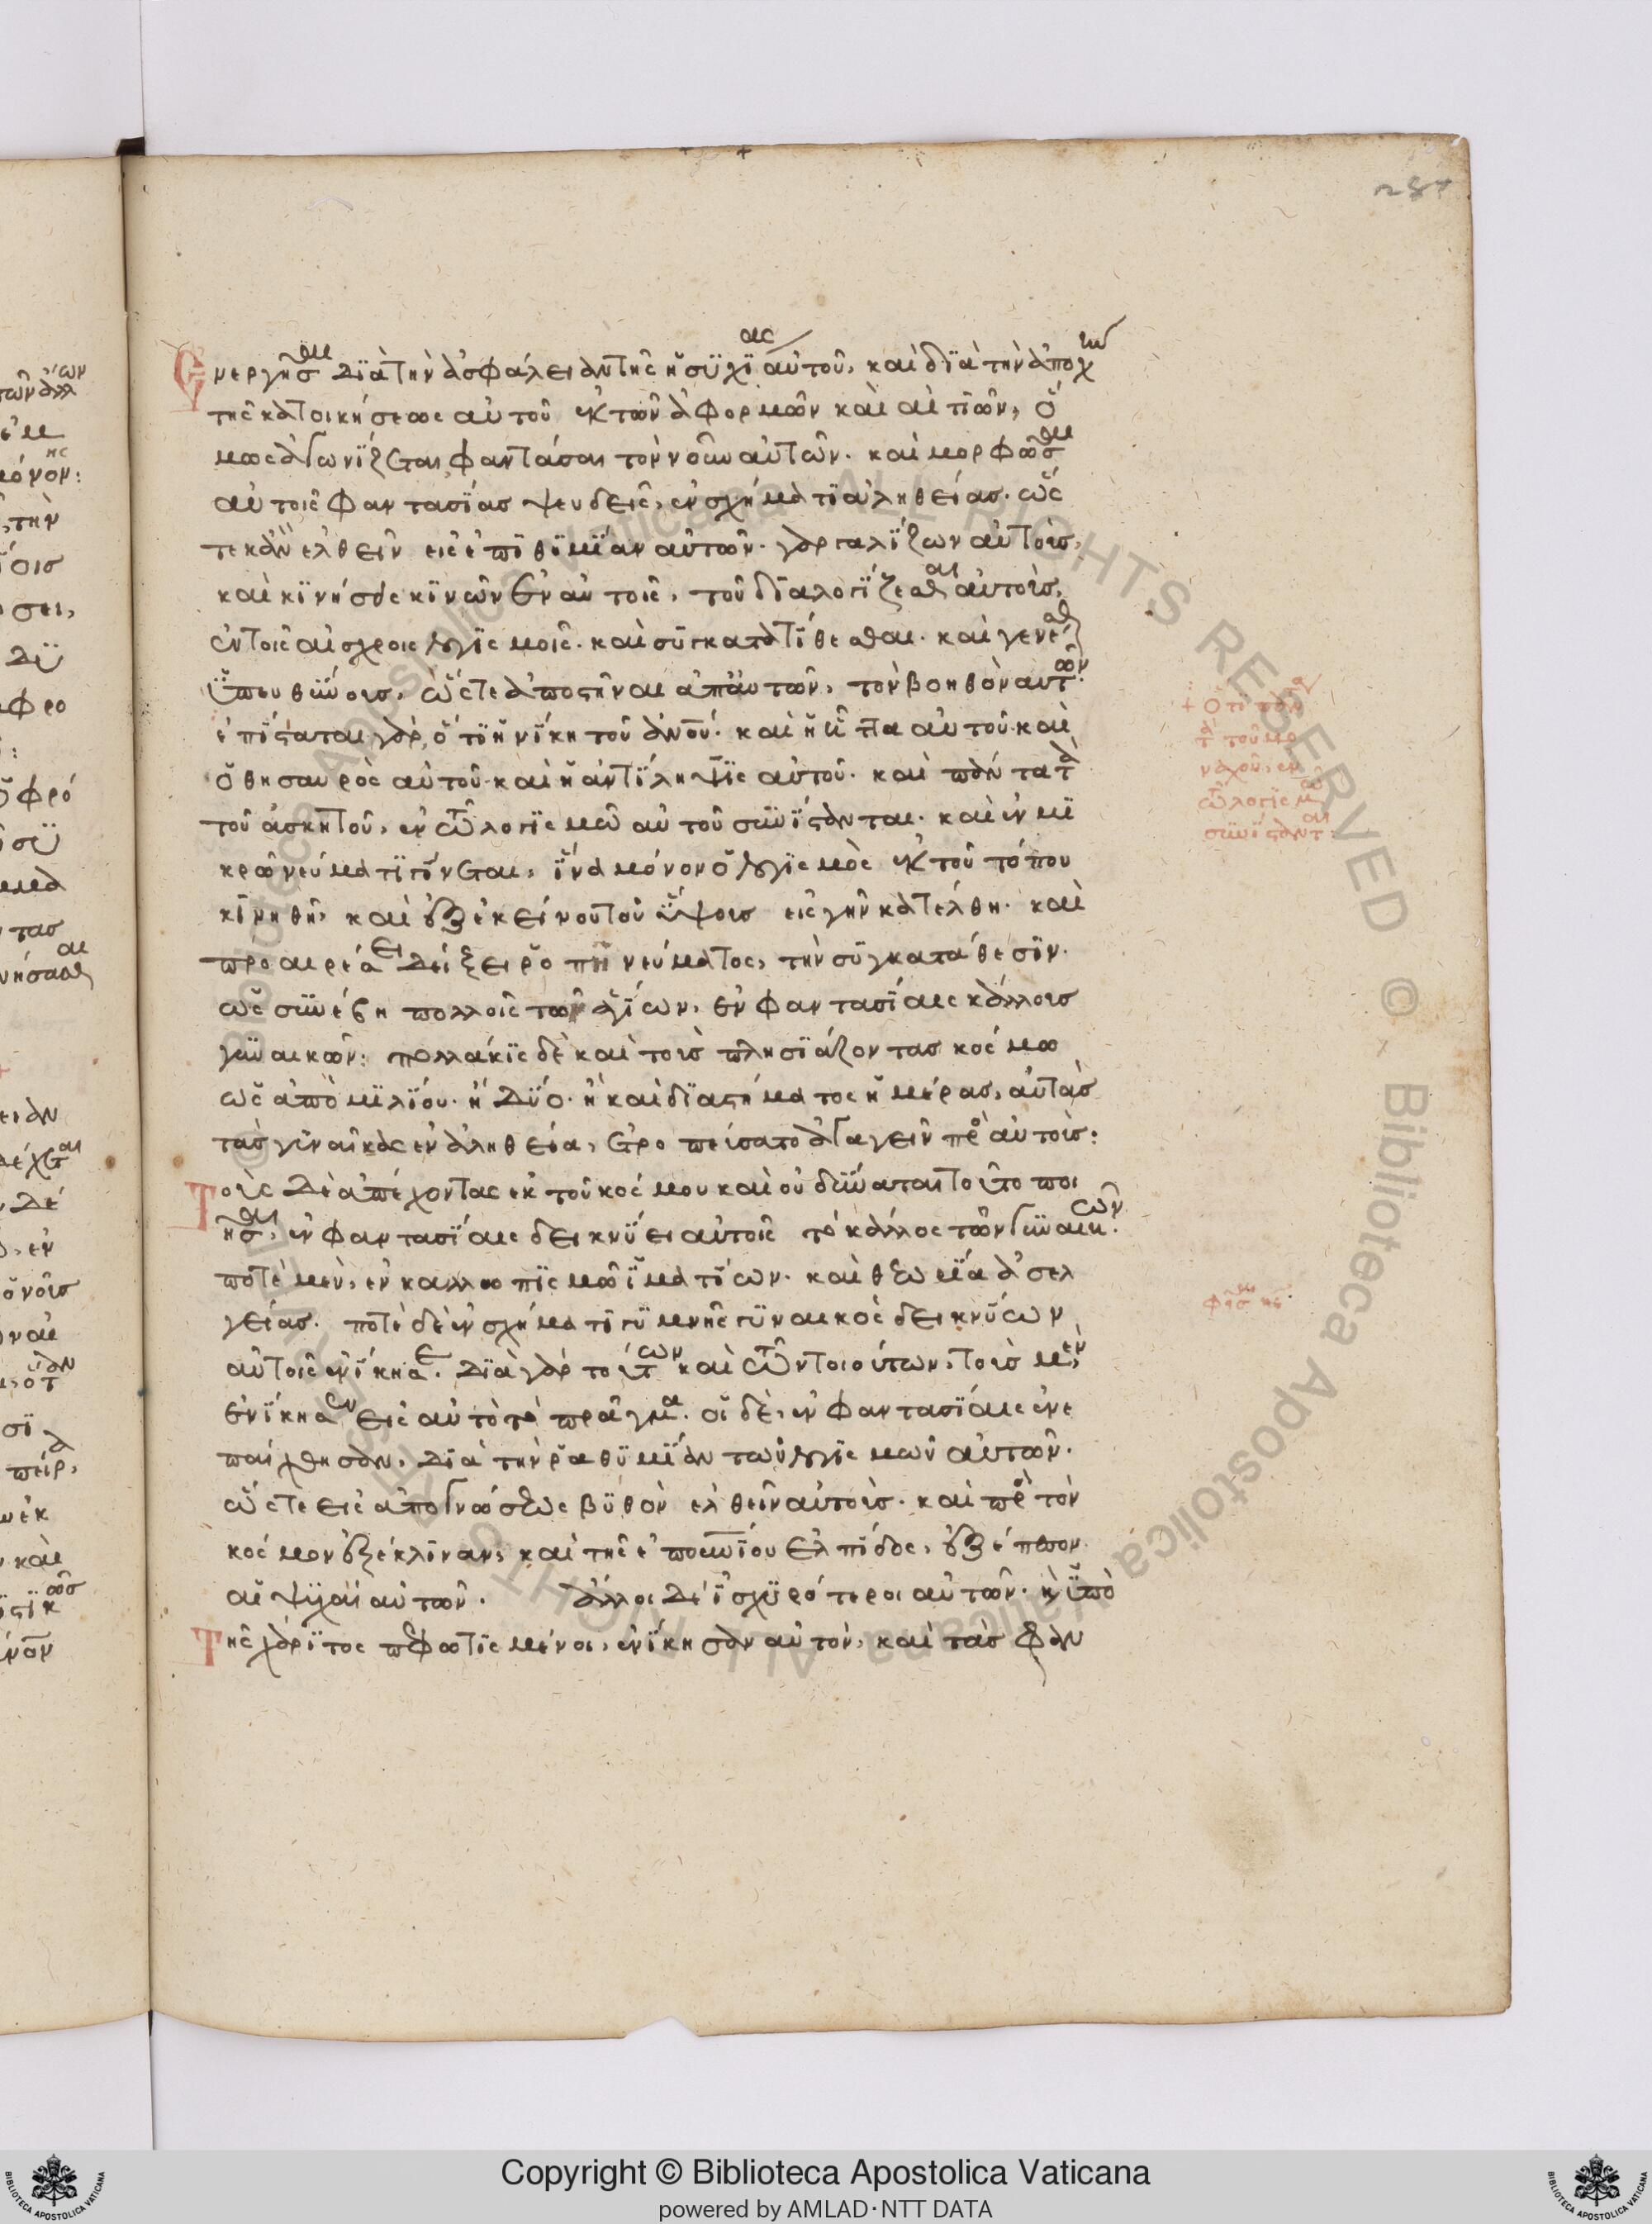 287
Ενεργῆσαι διὰ τὴν ἀσφάλειαν τῆς ἡσυχίας αὐτοῦ, καὶ διὰ τὴν ἀποχὴν
τῆς κατοικήσεως αὐτοῦ ἐκ τῶν ἀφορμῶν καὶ αἰτιῶν, ὅ
μως ἀγωνίζεται φαντάσαι τὸν νοῦν αὐτῶν. καὶ μορφῶσαι
αὐτοῖς φαντασίας ψευδεῖς, ἐν σχήματι ἀληθείας. ὥς
τε κἂν ἐλθεῖν εἰς ἐπιθυμίαν αὐτῶν. γαργαλίζων αὐτοὺς,
καὶ κινήσεις κινῶν ἐν αὐτοῖς, τοῦ διαλογίζεσθαι αὐτοὺς,
ἐν τοῖς αἰσχροῖς λογισμοῖς. καὶ συγκατατίθεσθαι. καὶ γενέσθαι
ὑπευθύνους, ὥστε ἀποστῆναι ἀπ' αὐτῶν, τὸν βοηθὸν αὐτῶν.
ἐπίσταται γὰρ, ὅτι ἡ νίκη τοῦ ἀνου. καὶ ἡ ἧττα αὐτοῦ. καὶ
ὁ θησαυρὸς αὐτοῦ. καὶ ἡ ἀντίληψις αὐτοῦ. καὶ πάντα τὰ
τοῦ ἀσκητοῦ, ἐν τῷ λογισμῷ αὐτοῦ συνίστανται. καὶ ἐν μι
κρῷ νεύματι γίνεται, ἵνα μόνον ὁ λογισμὸς ἐκ τοῦ τόπου
κινηθῇ, καὶ ἐξ ἐκείνου τοῦ ὕψους εἰς γῆν κατέλθῃ. καὶ
προαιρέσει δείξει ῥοπῇ νεύματος, τὴν συγκατάθεσιν.
ὡς συνέβη πολλοῖς τῶν ἁγίων, ἐν φαντασίαις κάλλους
γυναικῶν: πολλάκις δὲ καὶ τοὺς πλησιάζοντας κόσμω
ὡς ἀπὸ μιλίου. ἢ δύο. ἢ καὶ διαστήματος ἡμέρας, αὐτὰς
τὰς γυναῖκας ἐν ἀληθεία, ἐτροπώσατο ἀγαγεῖν πρὸς αὐτούς:
Τοὺς δὲ ἀπέχοντας ἐκ τοῦ κόσμου καὶ οὐ δύναται τοῦτο ποι
ῆσαι, ἐν φαντασίαις δεικνύει αὐτοῖς τὸ κάλλος τῶν γυναικῶν.
ποτὲ μὲν, ἐν καλλωπισμῷ ἱματίων. καὶ θεωρία ἀσελ
γείας. ποτὲ δὲ ἐν σχήματι γυμνῆς γυναικὸς δεικνύων
αὐτοῖς ἐνίκησε. διὰ γὰρ τούτων καὶ τῶν τοιούτων, τοὺς μὲν
ἐνίκησεν εἰς αὐτὸ τὸ πρᾶγμα. οἱ δὲ, ἐν φαντασίαις ἐνε
παίχθησαν, διὰ τὴν ῥαθυμίαν τῶν λογισμῶν αὐτῶν.
ὥστε εἰς ἀπογνώσεως βυθὸν ἐλθεῖν αὐτούς. καὶ πρὸς τὸν
κόσμον ἐξέκλιναν, καὶ τῆς ἐπουνίου ἐλπίδος, ἐξέπεσον
αἱ ψυχαὶ αὐτῶν. ἄλλοι δὲ ἰσχυρότεροι αὐτῶν. κ̀ ὑπὸ
Τῆς χάριτος πεφωτισμένοι, ἐνίκησαν αὐτὸν, καὶ τὰς φαν
+ Ὅτι πάντα
τὰ τοῦ μο
ναχοῦ, ἐν
τῷ λογισμῷ
συνίστανται:
Copyright © Biblioteca Apostolica Vaticana
powered by AMLAD·NTT DATA